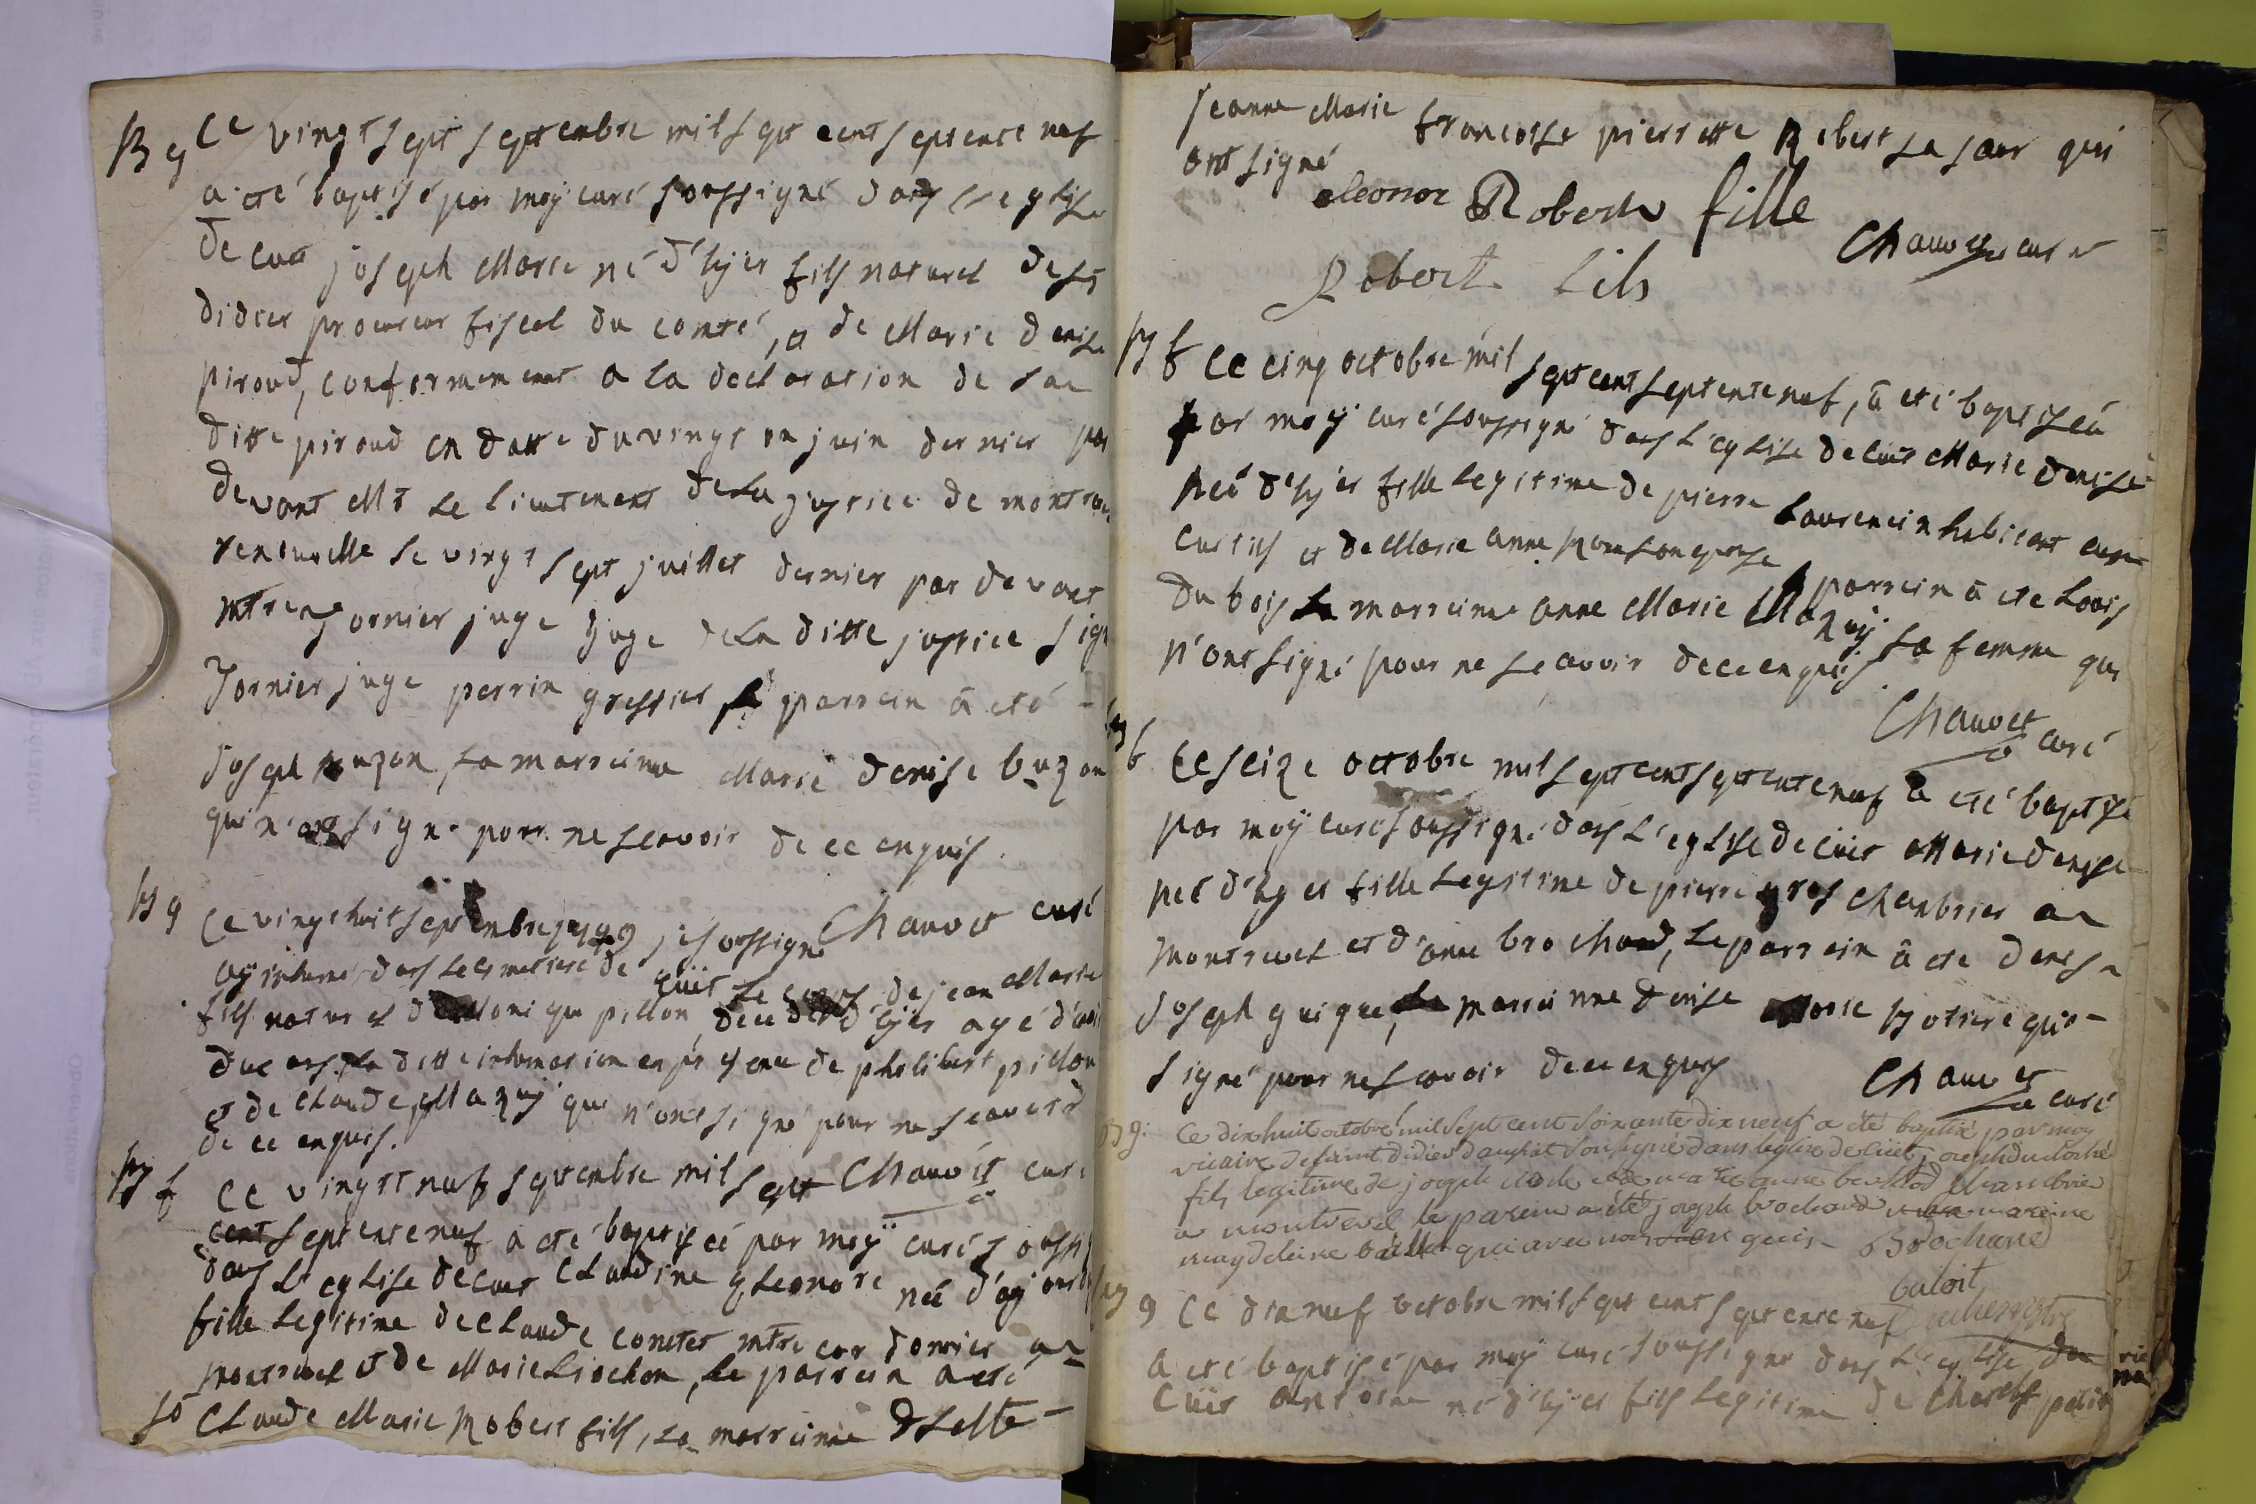 B g Ce vingt sept septembre mil sept cent septente neuf
a été baptisé par moÿ curé soussigné dans l'eglise
de cuet joseph Marie né d'hÿer fils naturel de sr
didier procureur fiscal du comté, et de Marie denise
piroud, conformement a la declaration de la
ditte piroud en datte du vingt un juin dernier par
devant Mr le lieutenant de la justice de montrevel
renouvelle le vingt sept juillet dernier par devant
jornier juge juge de la ditte justice signé
jornier juge perrin greffier le parrein â eté
joseph buzon, la marreinne Marie denise buzon
qui n'ont signé pour ne scavoir de ce enquis.
Chauvet curé
S g Ce vingt huit septembre 1779 je soussigné
aÿ inhumé dans le cimetiere de cuet le corps de jean Marie
fils naturel de Monique pillon decedé d'hÿer agé d'un
ditte inhumation en presence de philibert pillon
et de claude Mazuÿ qui n'ont signé pour ne scavoir
de ce enquis.
Chauvet curé
B f Ce vingtt neuf septembre mil sept
cent septente neuf a eté baptiseé par moÿ curé soussi
dans l'eglise de cuet claudine eleonore neé d'aujourd
fille legitime de claude comtet mtre cordonnier a
montrevel et de Marie Liochon, le parrein a eté
so Claude Marie Robert fils, la marreinne dselle
jeanne Marie francoise pierrette Robert sa sœur qui
ont signé
eleonor Robert fille
Chauvet curé
Robert fils
B f Ce cinq octobre mil sept cent septente neuf, â eté baptiseé
par moÿ curé soussigné dans l'eglise de cuet Marie denise
neé d'hÿer fille legitime de pierre Laurencin habitant
curtils et de Marie anne epouse parrein â eté Louis
du bois la marreinne anne Marie Mazuÿ sa femme qui
n'ont signé pour ne scavoir de ce enquis
Chauvet curé
B f Ce seize octobre mil sept cent septente neuf â eté baptiseé
par moÿ curé soussigné dans l'eglise de cuet Marie denise
neé d'hÿer fille legitime de pierre gros chambrier a
montrevel et d'anne brochard, le parrein â eté denis
joseph guigue, la marreinne denise Marie
signé pour ne scavoir de ce enquis
Chauvet curé
B g. Ce dix huit octobre mil sept cent soixante dix neuf a été baptisé par moy
vicaire de saint didier d'aussiat soussigné dans l'eglise de cüet joseph
fils legitime de joseph et de marie anne chambrier
a montrevel le parein a eté joseph brochard la mareine
magdeleine qui avec nous
Brochard
B g Ce dix neuf octobre mil sept cent septente neuf
a eté baptisé par moÿ curé soussigné dans l'eglise de
Cüet antoine né d'hÿer fils legitime de Charles petit